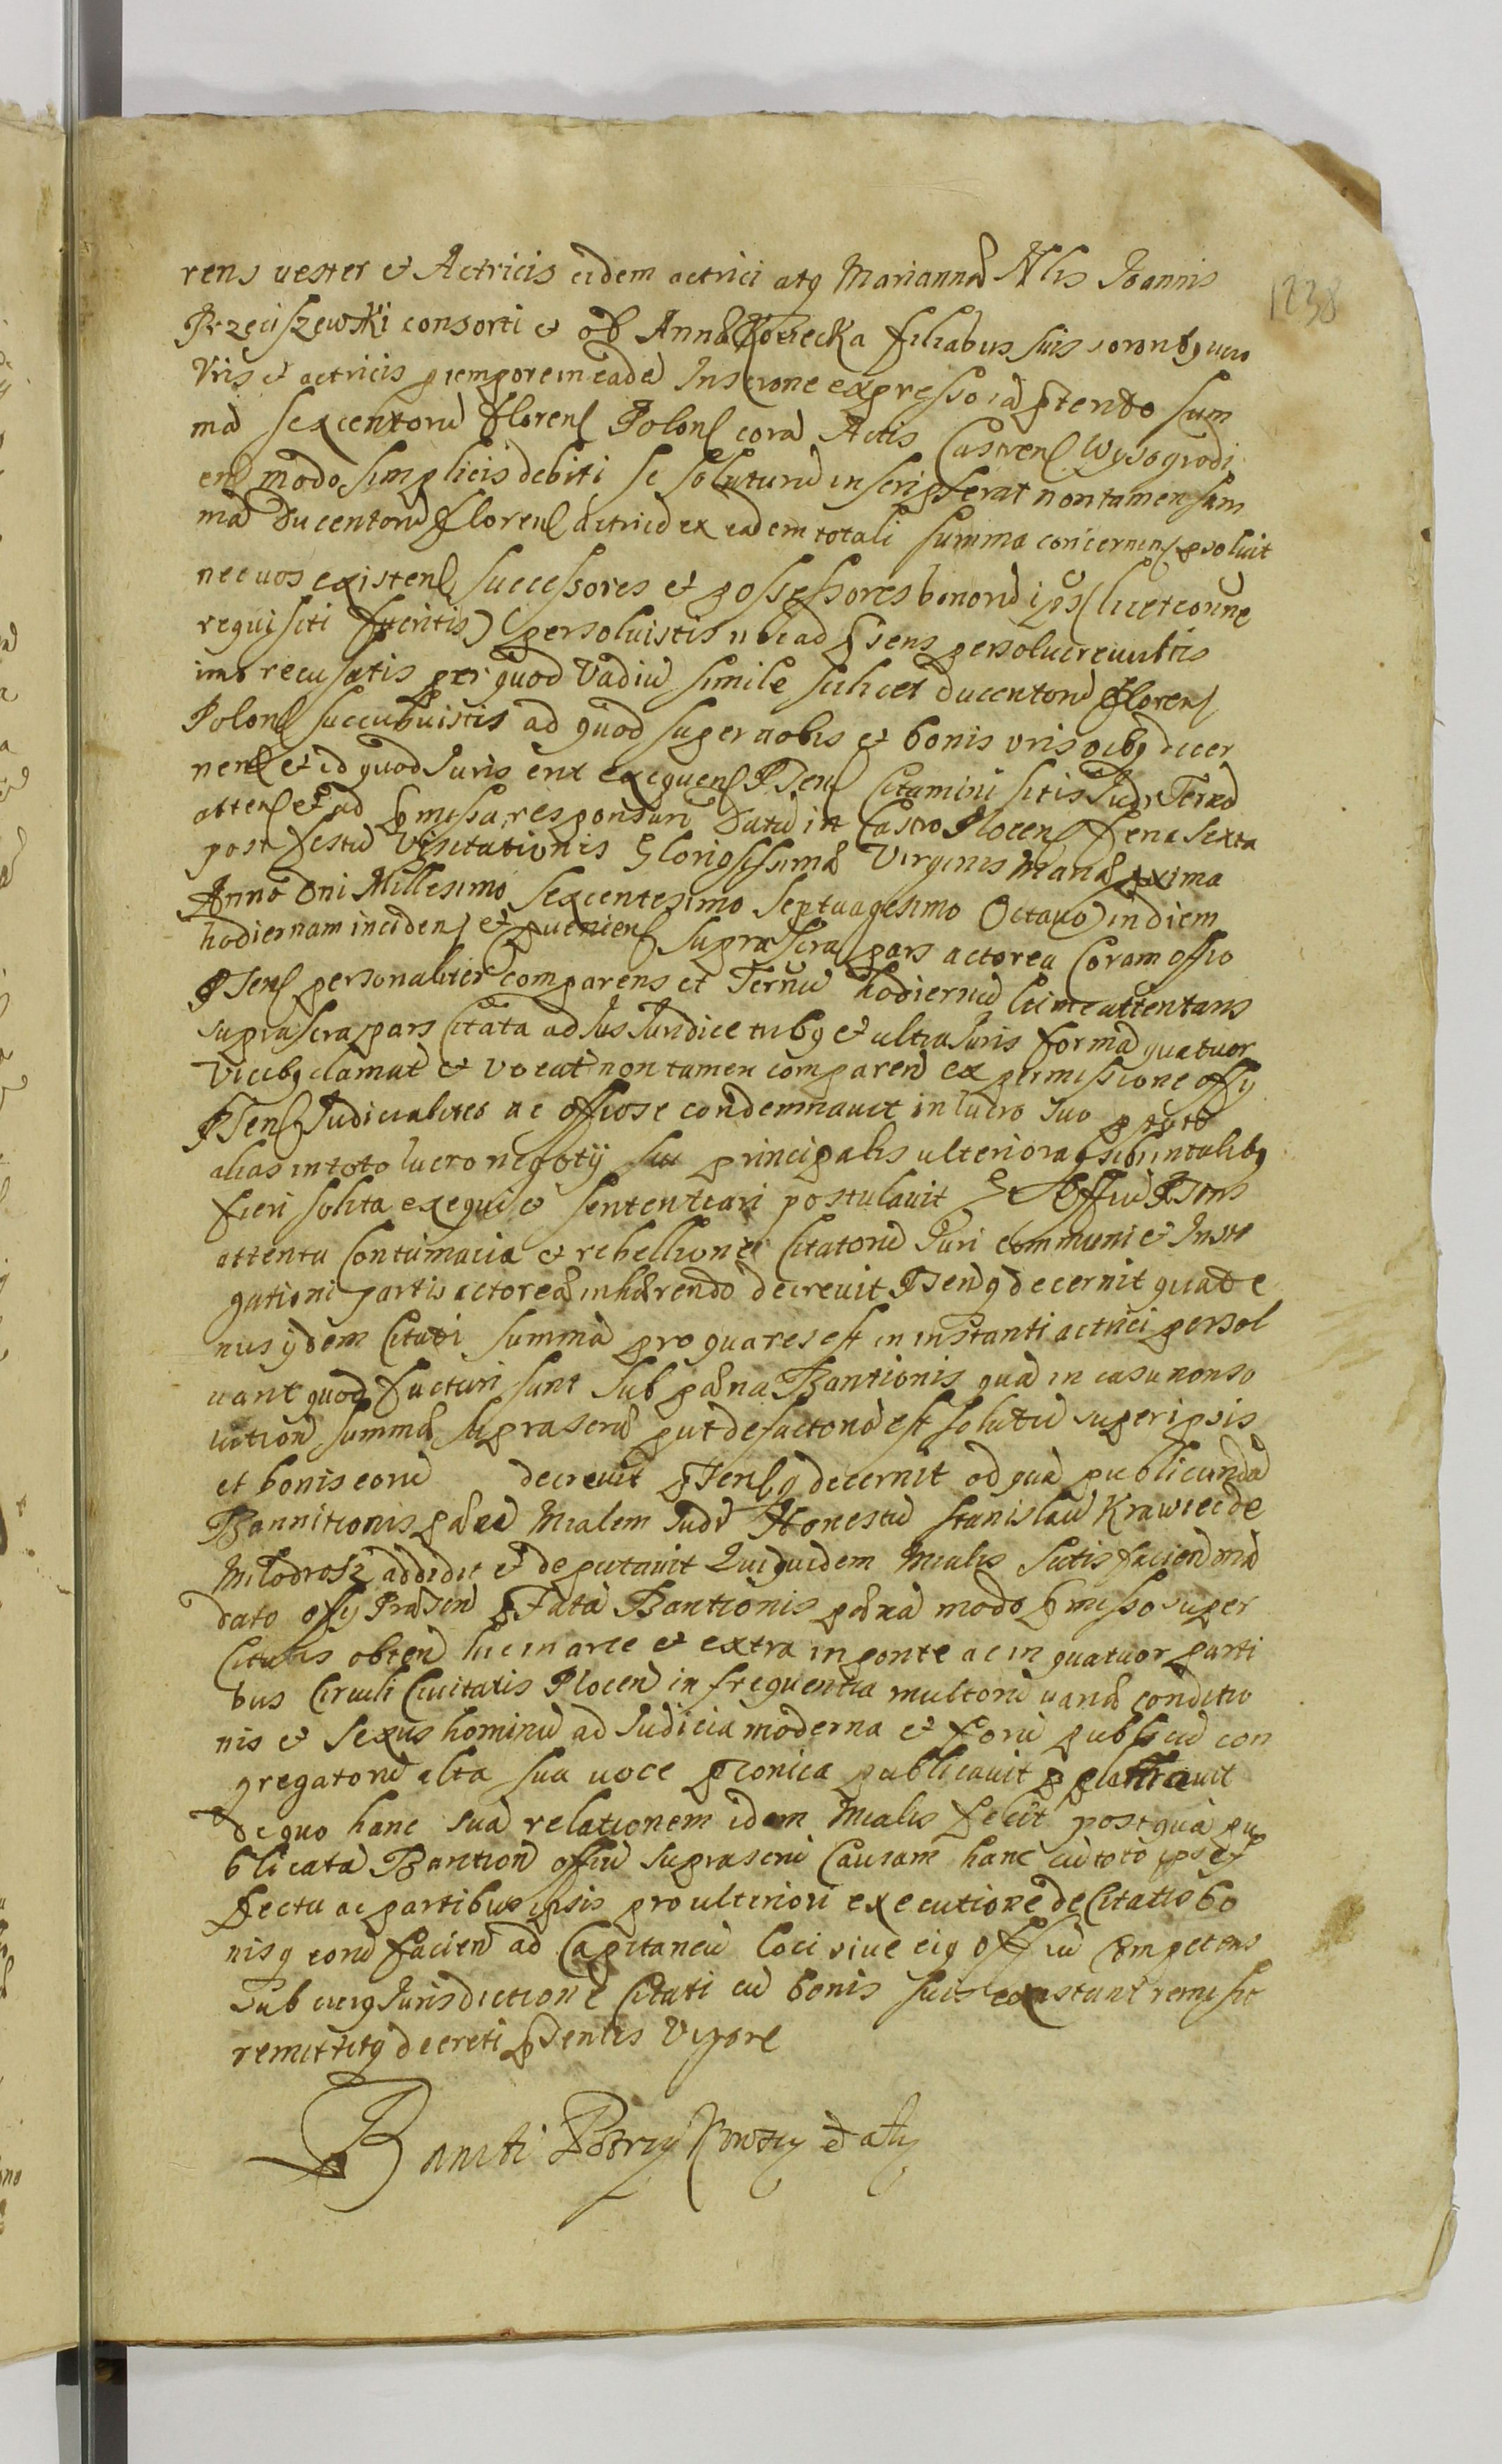 rens vester et Actricis eidem actrici atq Mariannæ Nlis Joannis
1238
Przeciszewski consorti et olim Annæ filiabus suis sororibq vero
vris et actricis p tempore in eadē Inscrone expresso iā p̄terito sum
mā sexcentorū florenſ Polonſ corā Actis Castrenſ Wysogrodi
enſ modo simplicis debiti se soluturū inscripserat non tamen sum
mā Ducentorū florenſ actricē ex eadem totali summa concernenſ psoluit
nec uos existenſ successores et possessores bonorū ips (licet conue
requisiti fueritis) persoluistis uncad p̄sens persoluere uultis
imo recusatis per quod Vadiū simile scilicet ducentorū florenſ
Polonſ succubuistis ad quod super uobis et bonis vris oībq decer
nenſ et id quod Juris erit exequenſ Psenſ Citamini sitis Judr Ternō
attenſ et ad p̄missa responsuri Datū in Castro Plocenſ feria sexta
post festū Visitationis Gloriosissimæ Virginis Mariæ pxima
Anno Dni Millesimo Sexcentesimo Septuagesimo Octauo) in diem
hodiernam incidenſ et pueniens suprascra pars actorea Coram offio
Psenſ personaliter comparens et Ternū hodiernū lime attentans
suprascra pars Citata ad Jus Juridice tribq et ultra Juris formā quatuor
Vicibq clamat et vocat non tamen comparen ex permissione offy
Psenſ Judicialiter ac offiose condemnauit in lucro suo
alias in toto lucro negotij sui principalis ulteriora sibi in talibq
fieri solita exequi et sententiari postulauit Et Offiū Psens
attenta Contumacia et rebellione Citatorū Juri communi et Insti
gationi partis actoreæ inhærendo decreuit Psenq decernit quate
nus ijdem Citati summā pro qua res est in instanti actrici persol
uant quod facturi sunt Sub pæna Bantionis quā in casu non so
lution summæ suprascræ put de facto nō est solutū super ipsis
et bonis eorū decreuit psenſq decernit ad quā publicandā
Bannitionis pænā Mialem Judr Honestū Stanislaū Krawiec de
Miłodrosz addidit et deputauit Quiquidem Mialis satisfaciend mā
dato offy Præsen p̄fatā Bantionis pænā modo p̄misso super
Citatis obten hic in arce et extra in ponte ac in quatuor parti
bus Circuli Ciuitatis Plocen in frequentia multorū uariæ conditio
nis et sexus hominū ad Judicia moderna et forū publicū con
gregatorū alta sua uoce pconica publicauit
de quo hanc suā relationem idem Mialis fecit post quā pu
blicatā Bantion offiū suprascrū Causam hanc cū toto ips ef
fectu ac partibus ipsis pro ulteriori executione de Citatis bo
nisq eorū facien ad Capitaneū loci siue eiq offiū competens
sub cuiq Jurisdictione Citati cū bonis suis exstant remisit
remittitq decreti p̄sentis Vigore
Baniti